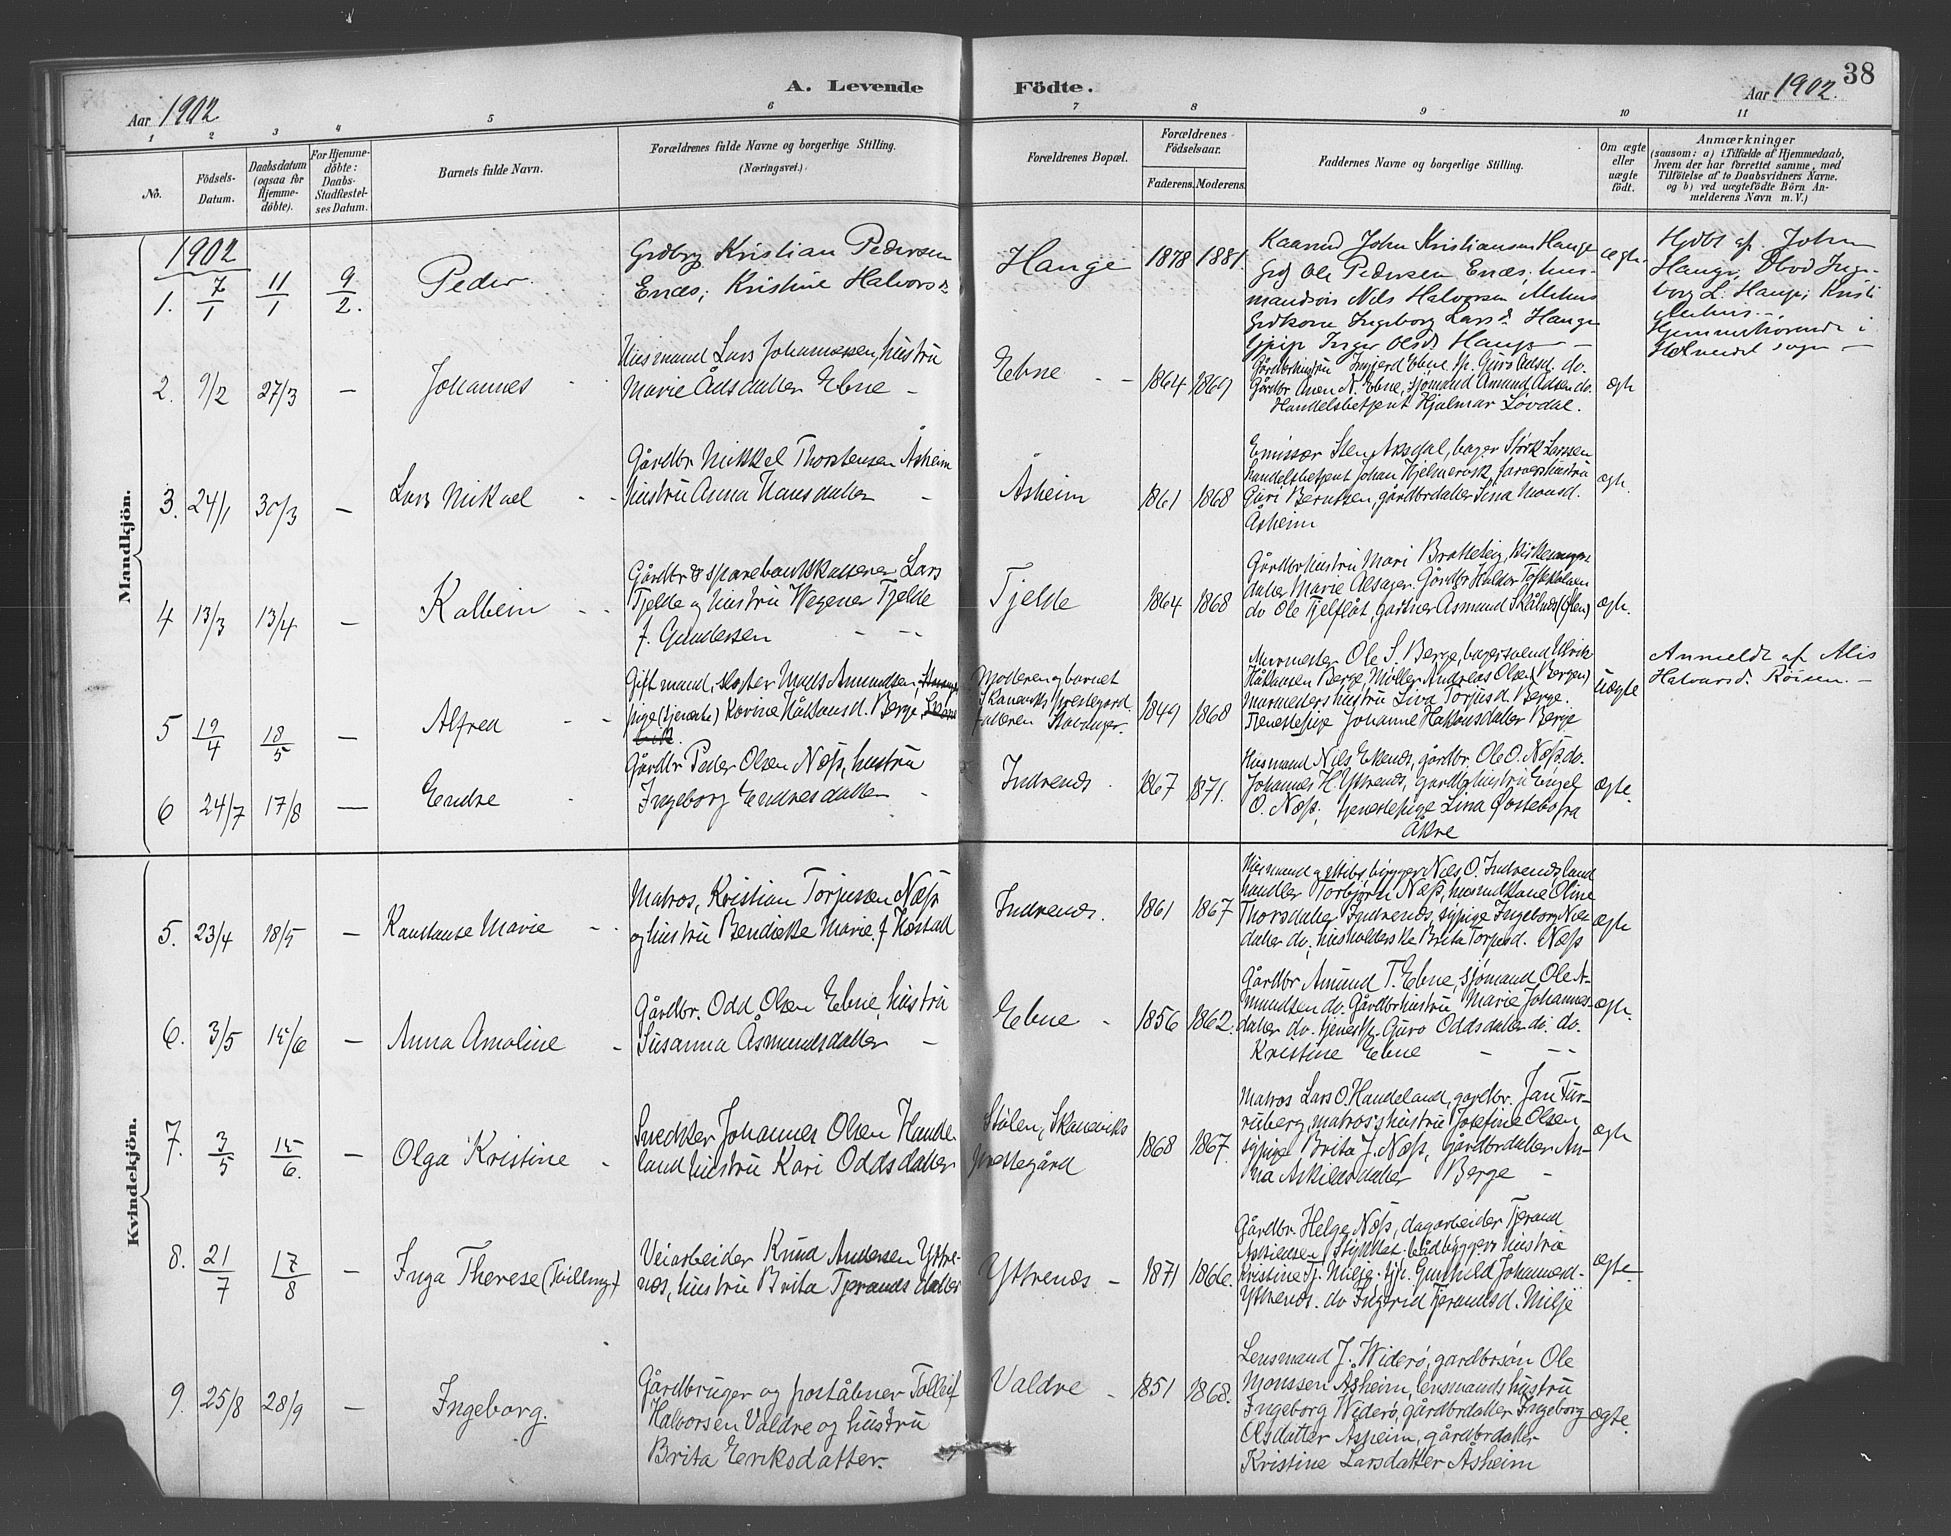 38
A. Levende Födte.
Aar 1902
Aar 1902.
1 2 3 4 5 6 7 8 9 10 11
No.
Födsels-Datum.
Daabsdatum (ogsaa for Hjemme-döbte).
For Hjemme-döbte: Daabs-Stadfæstel-ses Datum.
Barnets fulde Navn.
Forældrenes fulde Navne og borgerlige Stilling. (Næringsvei.)
Forældrenes Bopæl.
Forældrenes Födselsaar.
Faderens. Moderens.
Faddernes Navne og borgerlige Stilling.
Om ægte eller uægte födt.
Anmærkninger
(saasom: a) i Tilfælde af Hjemmedaab,
hvem der har forrettet samme, med
Tilföielse af to Daabsvidners Navne.
og b) ved uægtefödte Börn An-
melderens Navn m. V.)
Mandkjön.
1902
1. 7/1 11/1 9/2.
Peder
Grdbrg Kristian Pedersen
Enæs; Kristine Halvorsd.
Hauge
1878 1881.
Kaarmd John Kristiansen Hauge
Grdbr Ole Pedersen Enæs, hus-
mandsøn Nils Halvorsen Mehus
Grdkone Ingeborg Larsd. Hauge
pige Inger Olsd. Hauge —
ægte
Hjdbt af John
Hauge, Olod Inge-
borg L. Hauge, Kristi
Mehus. —
Hjemmehørende i
sogn —
2. 9/2 27/3 —
Johannes
Husmand Lars Johannessen, hustru
Marie Ådsdatter Ebne —
Ebne — —
1864 1869
Gårdbrhustru Ingjerd Ebne, Guro Adsd. do.
Gårdbr. K. Ebne, sjømand Åmund Adsen do.
Handelsbetjent Hjalmar Løvdal.
ægte
3. 24/1 30/3 —
Lars Mikael
Gårdbr Mikkel Thorstensen Åsheim
hustru Anna Hansdatter —
Åsheim
1861 1868
Emissær Sten Aksdal, bager Størk Larssen
handelsbetjent Johan Hjelmervik, farverhustru
Guri Berntsen, gårdbrdatter Sina Monsd.
Åsheim
ægte.
4 13/3 13/4 —
Kolbein
Gårdbr & sparebankkasserer Lars
Tjelde og hustru Wegener Tjelde
f. Gundersen — — —
Tjelde
1864 1868
Gårdbrhustru Mari Bratteteig,
datter Marie Alsager. Gårdbr Haldor
do Ole Tjelflåt, gartner Asmund Skålnes (Ølen)
ægte.
5 12/4 18/5 —
Alfred
Gift mand, Mads Amundsen,
pige (tjeneste) Korine Håkonsd. Berge,
Moderen og barnet
Skånevik prestegård.
faderen Stavanger.
1849 1868
Murmester Ole S. Berge, bagersvend Ulrik
Håkonsen Berge, Møller Andreas Olsen (Bergen)
Murmesterhustru Lina Torjusd. Berge.
Tjenestepige Johanne Hakonsdatter Berge
Uægte
Anmeldt af Alis
Halvarsd. Röisen. —
6 24/7 17/8 —
Endre
Gårdbr Peder Olsen Næss, hustru
Ingeborg Endresdatter —
Indrenæs
1867 1871.
Husmand Nils Ekenæs, gårdbr. Ole O. Næss, do.
Johannes H. Yttrenæs, gårdbrhustru Engel
O. Næss, tjenestepige Lina Østebø fra
Åkre
ægte.
Kvindekjön.
5. 23/4 18/5 —
Konstanse Marie
Matros, Kristian Torjussen Næss
og hustru Bendikke Marie f
Indrenæs.
1861 1867
Husmand og bygger Nils O. Indrenæs, land
handler Torbjørn Næss, husmdskone Oline
Thorsdatter Indrenæs, sypige Ingeborg Nils-
datter do; husholderske Brita Torjusd. Næss
ægte
6. 3/5 15/6 —
Anna Amaline
Gårdbr. Odd Olsen Ebne, hustru
Susanna Åsmundsdatter —
Ebne —
1856 1862.
Gårdbr. Amund T. Ebne, sjømand Ole A-
mundsen do. Gårdbrhustru Marie Johannes-
datter do. tjenestp. Guro Oddsdatter do. do.
Kristine Ebne — — —
ægte.
7. 3/5 15/6. —
Olga Kristine —
Snedker Johannes Olsen Hande-
land hustru Kari Oddsdatter
Stølen, Skaneviks
prestegård
1868 1867.
Matros Lars O. Handeland, gårdbr. Jan Tur-
ruberg, matroshustru Josefine Olsen,
sypige Brita J. Næss, Gårdbrdatter An-
na Askildsdatter Berge —
ægte
8. 21/7 17/8 —
Inga Therese (Tvilling)
Veiarbeider Knud Andersen Yttre-
næs, hustru Brita Tjerandsdatter
Yttrenæs —
1871 1866.
Gårdbr. Helge Næss, dagarbeider Tjerand
bådbyggerhustru
Kristine Tj. Milje. Gunhild Johannesd-
Yttrenæs. do Ingerid Tjerandsd. Milje
ægte.
9. 25/8 28/9 —
Ingeborg.
Gårdbruger og poståbner Tolleif
Halvorsen Valdre og hustru
Brita Eeriksdatter.
Valdre —
1851 1868.
Lensmand J. Widerö, gårdbrsön Ole
Monssen Åsheim, lensmandshustru
Ingeborg Widerö, gårdbrdatter Ingeborg
Olsdatter Åsheim, gårdbrdatter
Kristine Larsdatter Åsheim
ægte.